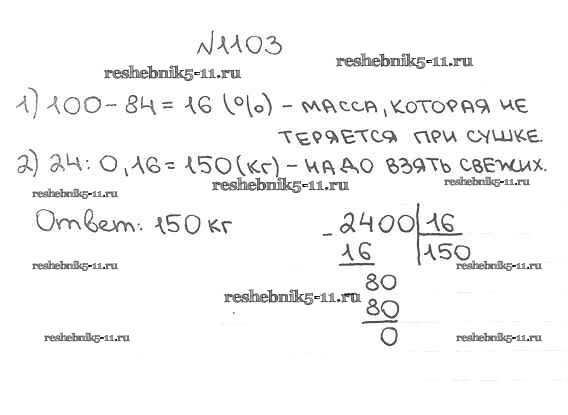 №1103
reshebnik5-11.ru
reshebnik5-11.ru
1) 100 - 84 = 16 (%) - МАССА, КОТОРАЯ НЕ
ТЕРЯЕТСЯ ПРИ СУШКЕ.
2) 24 : 0,16 = 150 (кг) - НАДО ВЗЯТЬ СВЕЖИХ.
reshebnik5-11.ru
reshebnik5-11.ru
reshebnik5-11.ru
Ответ: 150 кг
- 2400 | 16
16 | 150
reshebnik5-11.ru
reshebnik5-11.ru
80
reshebnik5-11.ru
80
0
reshebnik5-11.ru
reshebnik5-11.ru